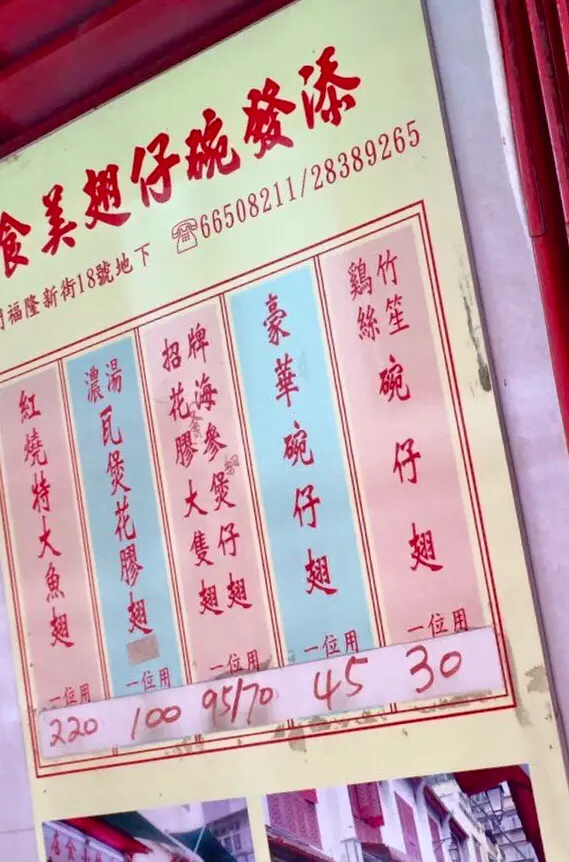 添發碗仔翅美食
☎66508211/28389265
門福隆新街18號地下
竹笙
鷄絲
碗仔翅
一位用
30
豪華碗仔翅
一位用
45
招牌
花膠海參
大隻煲仔
翅翅
一位用
95/70
濃湯
瓦煲花膠翅
一位用
100
紅燒特大魚翅
一位用
220